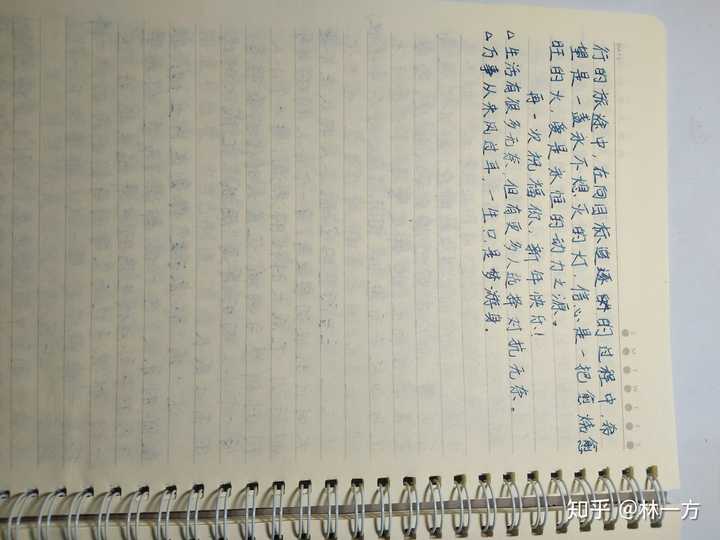 行的旅途中,在向目标追逐的过程中,希
望是一盏永不熄灭的灯,信心是一把愈烧愈
旺的火,爱是永恒的动力之源。
再一次祝福你、新年快乐!
△生活有很多无奈,但有更多人选择对抗无奈。
△万事从来风过耳,一生只是梦游身。
知乎 @林一方